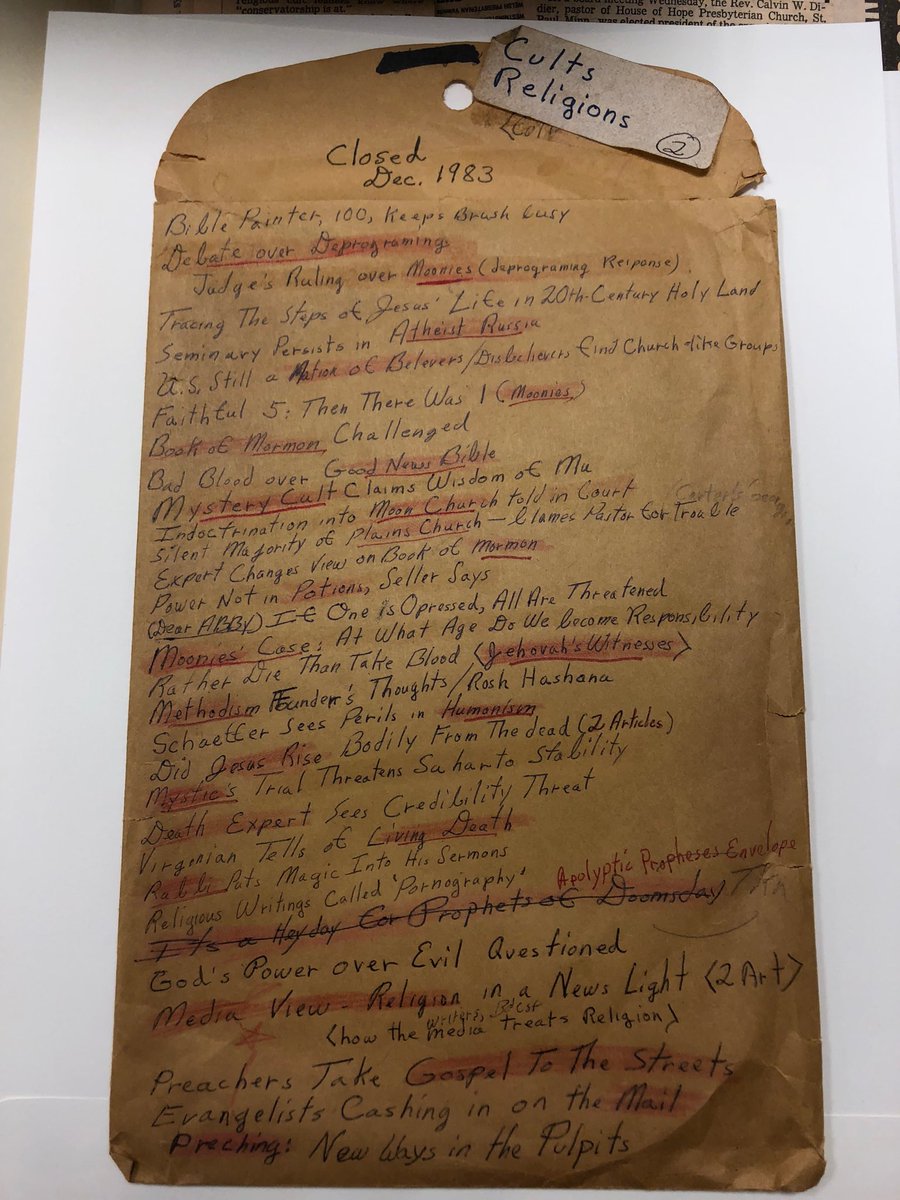 "conservatorship is at."
a board meeting Wednesday, the Rev. Calvin W. Di-
dier, pastor of House of Hope Presbyterian Church, St.
Paul, Minn., was elected president of the
Cults
Religions
2
Closed
Dec. 1983
Bible Painter, 100, Keeps Brush busy
Debate over Deprogramings
Judge's Ruling over Moonies (deprograming Response)
Tracing The Steps of Jesus' Life in 20th-Century Holy Land
Seminary Persists in Atheist Russia
U.S. Still a Nation of Belevers/Disbelievers find Church-like Groups
Faithful 5: Then There Was 1 (Moonies)
Book of Mormon Challenged
Bad Blood over Good News Bible
Mystery Cult Claims Wisdom of Mu
Indoctrination into Moon Church told in Court
Silent Majority of Plains Church - blames Pastor for Trouble
Carter's
Expert Changes View on Book of Mormon
Power Not in Potions, Seller Says
(Dear ABBY) If One is Opressed, All Are Threatened
Moonies' Case: At What Age Do We become Responsibility
Rather Die Than Take Blood <Jehovah's Witnesses>
Methodism Founder's Thoughts/Rosh Hashana
Schaeffer Sees Perils in Humanism
Did Jesus Rise Bodily From The dead (2 Articles)
Mystic's Trial Threatens Suharto Stability
Death Expert Sees Credibility Threat
Virginian Tells of Living Death
Rabbi Puts Magic Into His Sermons
Religious Writings Called 'Pornography'
Apolyptic Propheses Envelope
It's a Heyday for Prophets of Doomsday
God's Power over Evil Questioned
Media View - Religion in a News Light <2 Art>
writers, Bdcst
<how the media treats Religion>
Preachers Take Gospel To The Streets
Evangelists Cashing in on the Mail
Preching: New Ways in the Pulpits